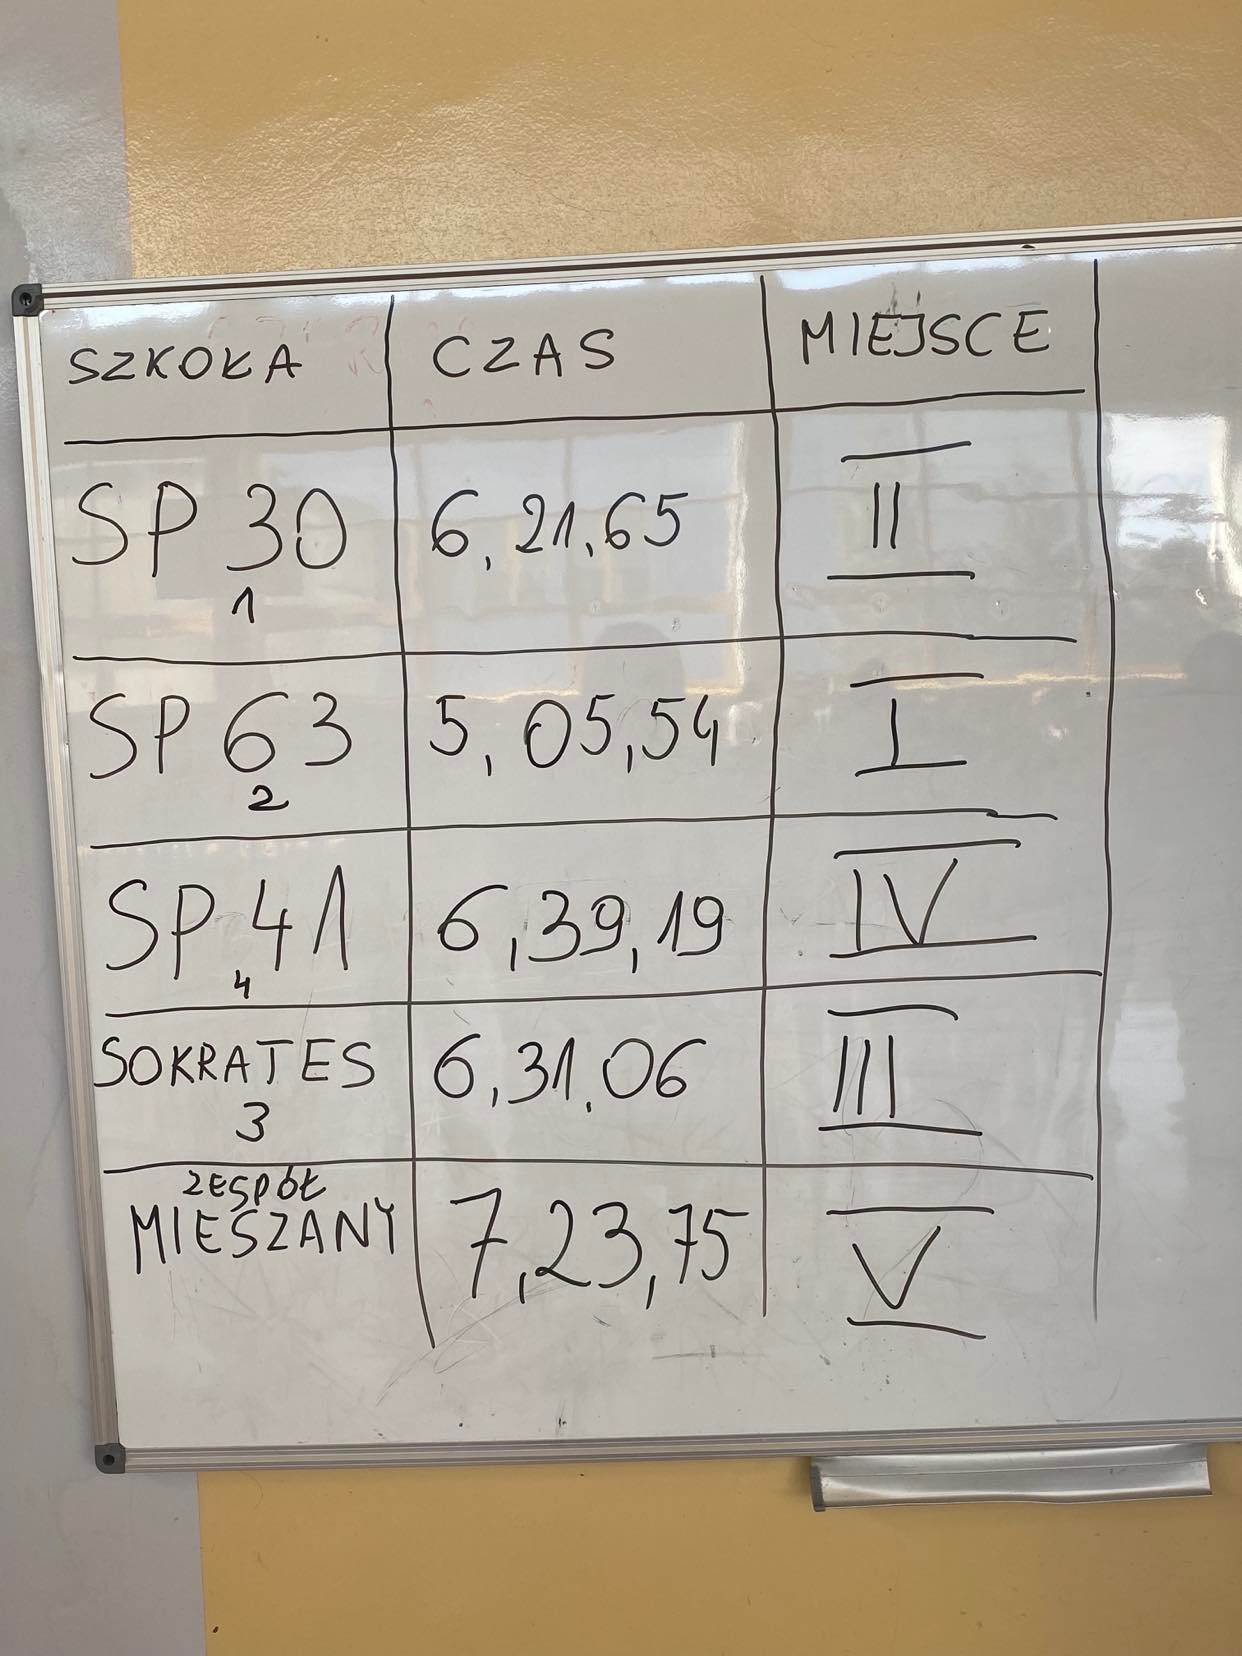 SZKOŁA CZAS MIEJSCE
SP 30 6,21,65 II
1
SP 63 5,05,54 I
2
SP 41 6,39,19 IV
4
SOKRATES 6,31,06 III
3
ZESPÓŁ
MIESZANY 7,23,75 V